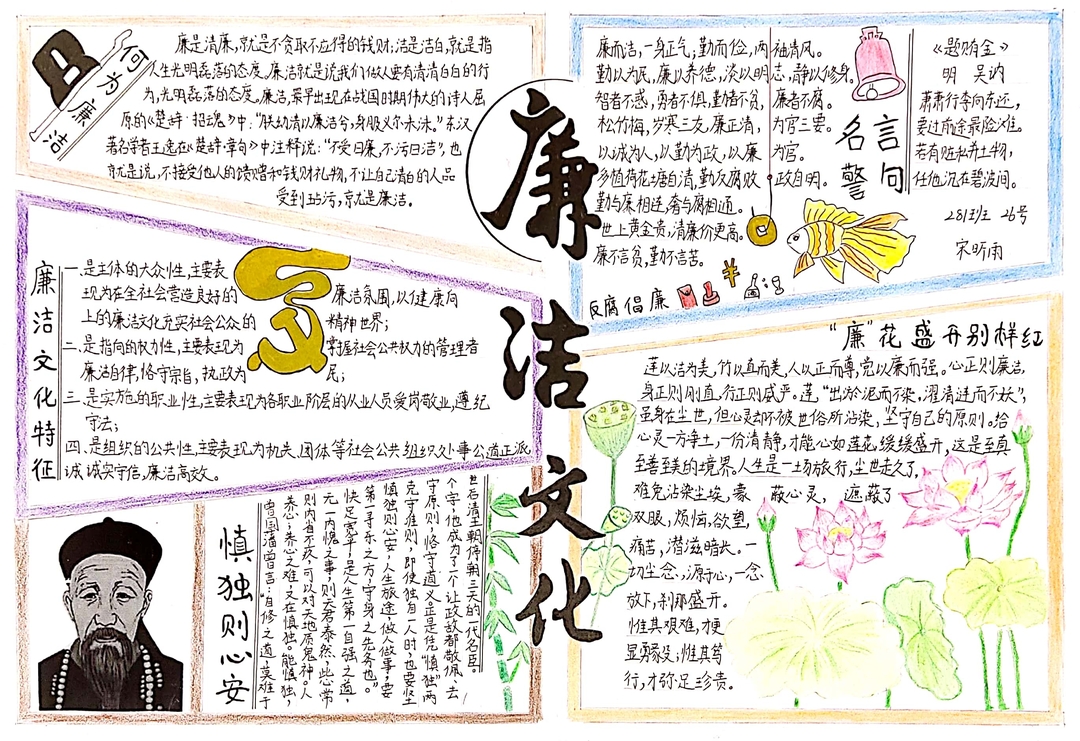 廉洁文化
何为廉洁
廉是清廉,就是不贪取不应得的钱财;洁是洁白,就是指
人生光明磊落的态度。廉洁就是说我们做人要有清清白白的行
为,光明磊落的态度。廉洁,最早出现在战国时期伟大的诗人屈
原的《楚辞·招魂》中:“朕幼清以廉洁兮,身服义尔未沫。”东汉
著名学者王逸在《楚辞·章句》中注释说:“不受曰廉,不污曰洁”,也
就是说,不接受他人的馈赠和钱财礼物,不让自己清白的人品
受到玷污,就是廉洁。
廉洁文化特征
一.是主体的大众性,主要表
现为在全社会营造良好的廉洁氛围,以健康向
上的廉洁文化充实社会公众的精神世界;
二.是指向的权力性,主要表现为掌握社会公共权力的管理者
廉洁自律,恪守宗旨,执政为民;
三.是实施的职业性,主要表现为各职业阶层的从业人员爱岗敬业,遵纪
守法;
四.是组织的公共性,主要表现为机关,团体等社会公共组织处事公道正派
诚诚实守信,廉洁高效。
慎独则心安
曾国藩曾言:“自修之道,莫难于
养心;养心之难,又在慎独。能慎独,
则内省不疚,可以对天地质鬼神。人
元一内愧之事,则天君泰然,此心常
快足宽平,是人生第一自强之道,
第一寻乐之方,守身之先务也。”
慎独则心安,人生旅途,做人做事,要
克守准则,即使独自一人时,也要坚
守原则,恪守道义。正是凭“慎独”两
个字,他成为了一个让政敌都敬佩,去
世后清王朝停朝三天的一代名臣。
名言警句
廉而洁,一身正气;勤而俭,两袖清风。
勤以为民,廉以养德,淡以明志,静以修身。
智者不惑,勇者不惧,勤者不贫,廉者不腐。
松竹梅,岁寒三友,廉正清,为官三要。
以诚为人,以勤为政,以廉为官。
多植荷花塘自清,勤反腐败政自明。
勤与廉相连,奢与腐相通。
世上黄金贵,清廉价更高。
廉不言贫,勤不言苦。
《题贿金》
明 吴讷
萧萧行李向东还,
要过前途最险滩。
若有赃私并土物,
任他沉在碧波间。
281班 26号
宋昕雨
反腐倡廉
“廉”花盛开别样红
莲以洁为美,竹以直而美,人以正而尊,官以廉而强。心正则廉洁,
身正则刚直,行正则威严。莲“出淤泥而不染,濯清涟而不妖”,
虽身在尘世,但心灵却不被世俗所沾染,坚守自己的原则。给
心灵一方净土,一份清静,才能心如莲花,缓缓盛开,这是至真
至善至美的境界。人生是一场旅行,尘世走久了,
难免沾染尘埃,蒙蔽心灵,遮蔽了
双眼,烦恼,欲望,
痛苦,潜滋暗长。一
切尘念,源于心,一念
放下,刹那盛开。
惟其艰难,才更
显勇毅;惟其笃
行,才弥足珍贵。